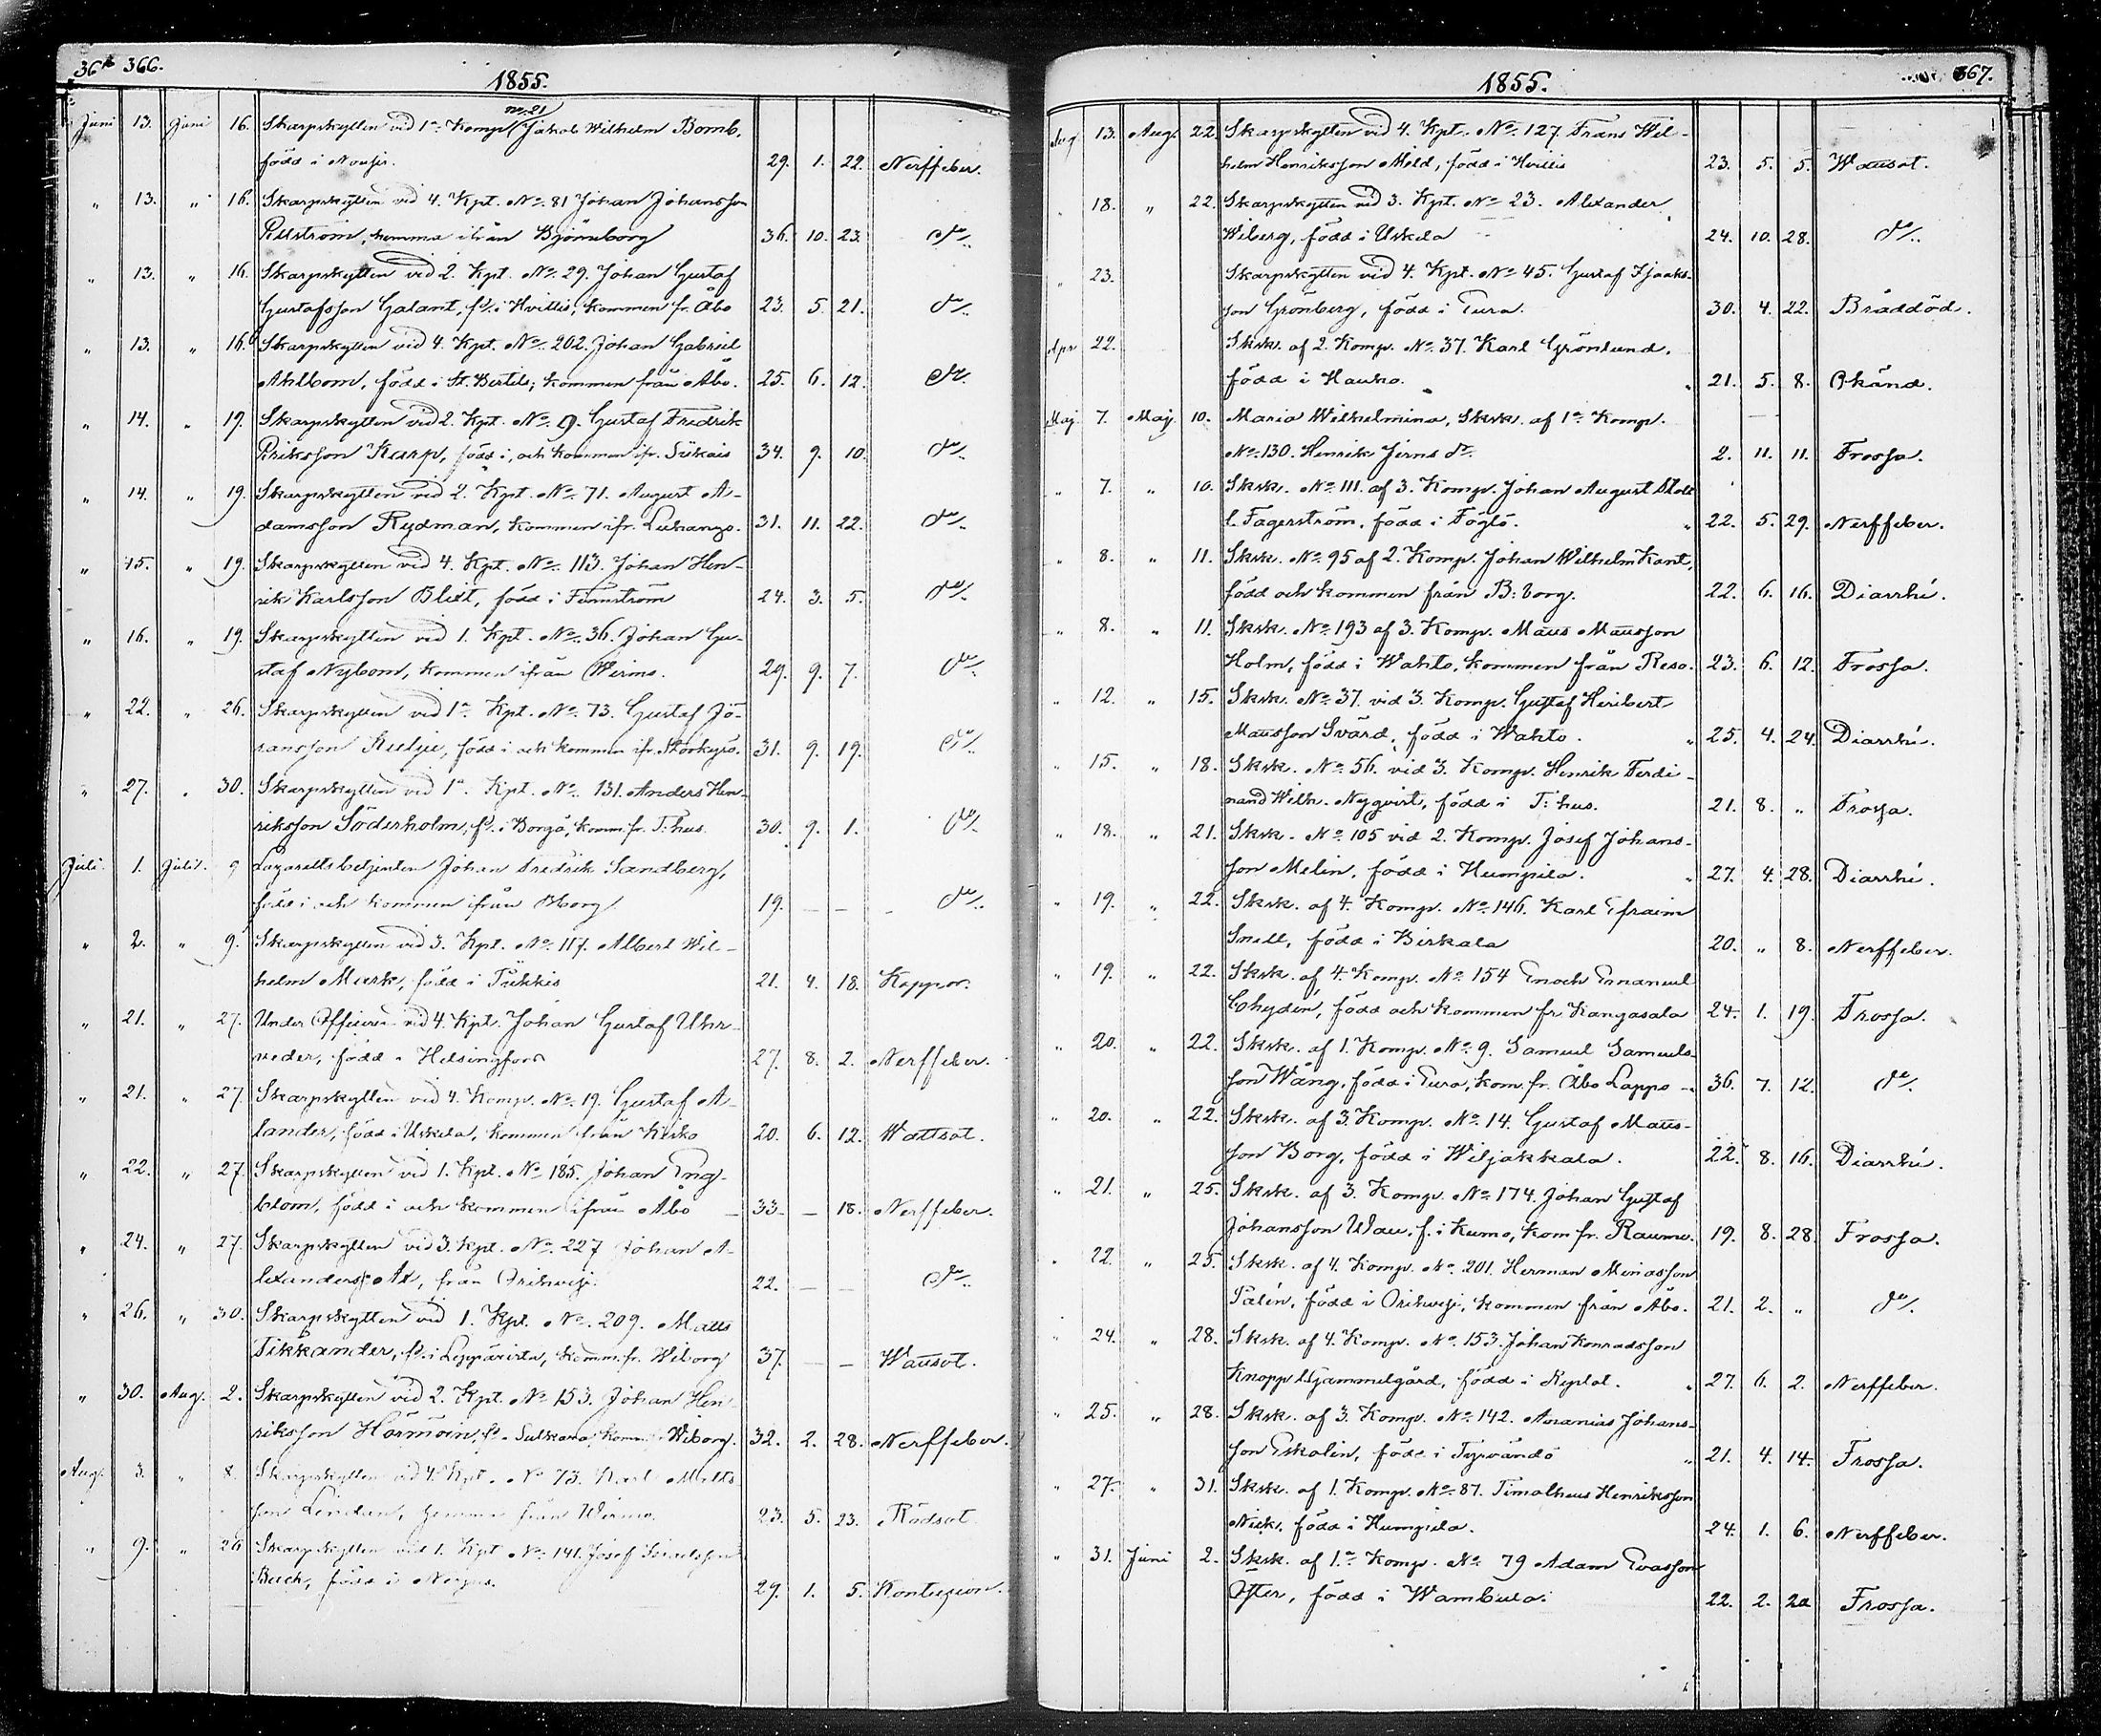 366.
1855.
no 21
Juni 13. Juni 16. Skarpskytten vid 1a Komp. Jakob Wilhelm Bomb,
född i Nousis. 29. 1. 22. Nerffeber.
" 13. " 16. Skarpskytten vid 4. Kpt. No. 81 Johan Johansson
hemma ifrån Björneborg 36. 10. 23. do.
" 13. " 16. Skarpskytten vid 2. Kpt. No. 29. Johan Gustaf
Gustafsson Galant, fd. i Hvittis, kommen fr. Åbo 23. 5. 21. do.
" 13. " 16. Skarpskytten vid 4. Kpt. No. 202. Johan Gabriel
Ahlbom, född i St. Bertils, kommen från Åbo. 25. 6. 12. do.
" 14. " 19. Skarpskytten vid 2. Kpt. No. 9. Gustaf Fredrik
Eriksson Karp, född i, och kommen ifr. Siikais 34. 9. 10. do.
" 14. " 19. Skarpskytten vid 2. Kpt. No. 71. August A-
damsson Rydman, kommen ifr. 31. 11. 22. do.
" 15. " 19. Skarpskytten vid 4. Kpt. No. 113. Johan Hen-
rik Karlsson Blixt, född i Finnström 24. 3. 5. do.
" 16. " 19. Skarpskytten vid 1. Kpt. No. 36. Johan Gu-
staf Nybom, kommen ifrån Wirmo. 29. 9. 7. do.
" 22. " 26. Skarpskytten vid 1a Kpt. No. 73. Gustaf Jö-
ransson född i och kommen ifr. Storkyro. 31. 9. 19. do.
" 27. " 30. Skarpskytten vid 1a. Kpt. No. 131. Anders Hen-
riksson Söderholm, fd. i Borgå, komm. fr. T:hus. 30. 9. 1. do.
Juli 1. Juli 9 Lazarettsbetjenten Johan Fredrik Sandberg,
född i och kommen ifrån Bborg 19. — — do.
" 2. " 9. Skarpskytten vid 3. Kpt. No. 117. Albert Wil-
helm Mark, född i Pikkis 21. 4. 18. Koppor.
" 21. " 27. Under Officeren vid 4. Kpt. Johan Gustaf Uhr-
weder, född i Helsingfors 27. 8. 2. Nerffeber.
" 21. " 27. Skarpskytten vid 4. Komp. No. 19. Gustaf A-
lander, född i Uskela, kommen från Kisko 20. 6. 12. Wattsot.
" 22. " 27. Skarpskytten vid 1. Kpt. No. 185. Johan Eng-
blom, född i och kommen ifrån Åbo 33. — 18. Nerffeber.
" 24. " 27. Skarpskytten vid 3. Kpt. No. 227 Johan A-
lexanders Ax, från Orihvesi. 22. — — do.
" 26. " 30. Skarpskytten vid 1. Kpt. No. 209. Matts
Tikkander, fd. i Leppävirta, komm. fr. Wiborg 37. — — Wattsot.
" 30. Aug. 2. Skarpskytten vid 2. Kpt. No. 153. Johan Hen-
riksson Hörmöin, fd. i Sulkava, komm. Wiborg. 32. 2. 28. Nerffeber.
Aug. 3. " 8. Skarpskytten vid 4. Kpt. No. 73. Karl Matts-
son Linden, hemma från Wirmo. 23. 5. 23. Rödsot
" 9. " 26 Skarpskytten vid 1. Kpt No. 141. Josef
Buch, född i 29. 1. 5. Kontusion.
367.
1855.
Aug 13. Aug. 22. Skarpskytten vid 4. Kpt. No. 127. Frans Wil-
helm Henriksson Mild, född i Hvittis 23. 5. 5. Wattsot.
" 18. " 22. Skarpskytten vid 3. Kpt. No 23. Alexander
Wiberg, född i Uskela 24. 10. 28. do.
" 23. Skarpskytten vid 4. Kpt. No 45. Gustaf Isaaks-
son Grönberg, född i Eura. 30. 4. 22. Bråddöd.
Apr 22. Skrk. af 2. Komp. No. 37. Karl Grönlund,
född i Hauho. " 21. 5. 8. Okänd.
Maj 7. Maj. 10. Maria Wilhelmina, Skrk. af 1a Komp.
No. 130. Henrik Jerns dr. 2. 11. 11. Frossa.
" 7. " 10. Skrk. No. 111. af 3. Komp. Johan August Stolt
l. Fagerström, född i Föglö. " 22. 5. 29. Nerffeber.
" 8. " 11. Skrk. No 95 af 2. Komp. Johan Wilhelm Kant,
född och kommen från B:borg. 22. 6. 16. Diarrhé.
" 8. " 11. Skrk. No. 193 af 3. Komp. Matts Mattsson
Holm, född i Wahto, kommen från Reso. 23. 6. 12. Frossa.
" 12. " 15. Skrk. No. 37. vid 3. Komp. Gustaf Heribert
Mattsson Svärd, född i Wahto. " 25. 4. 24. Diarrhé.
" 15. " 18. Skrk. No. 56. vid 3. Komp. Henrik Ferdi-
nand Wilh. Nyqvist, född i T:hus. 21. 8. " Frossa.
" 18. " 21. Skrk. No 105 vid 2. Komp. Josef Johans-
son Melin, född i Humppila. " 27. 4. 28. Diarrhé.
" 19. " 22. Skrk. af 4. Komp. No. 146. Karl Efraim
Snell, född i Birkala 20. " 8. Nerffeber.
" 19. " 22. Skrk. af 4. Komp. No 154 Enoch Emanuel
Chydén, född och kommen fr. Kangasala 24. 1. 19. Frossa.
" 20. " 22. Skrk. af 1. Komp. No. 9. Samuel Samuels-
son Wång, född i Eura, kom. fr. Åbo Lappo 36. 7. 12. do.
" 20. " 22. Skrk. af 3. Komp. No. 14. Gustaf Matts-
son Borg, född i Wiljakkala. 22. 8. 16. Diarrhé.
" 21. " 25. Skrk. af 3. Komp. No. 174. Johan Gustaf
Johansson f. i Kumo, kom fr. Raumo. 19. 8. 28. Frossa.
" 22. " 25. Skrk. af 4. Komp. No. 201. Herman
Palén, född i Orihvesi, kommen från Åbo. 21. 2. " do.
" 24. " 28. Skrk. af 4. Komp. No. 153. Johan Konradsson
Knopp l. Gammelgård, född i " 27. 6. 2. Nerffeber.
" 25. " 28. Skrk. af 3. Komp. No. 142. Ananias Johans-
son Eskolin, född i Tyrvändö " 21. 4. 14. Frossa.
" 27. " 31. Skrk. af 1. Komp. No. 87. Timotheus Henriksson
född i Humppila. 24. 1. 6. Nerffeber.
" 31. Juni 2. Skrk. af 1a Komp. No 79 Adam
Öfter, född i Wambula. 22. 2. 20 Frossa.